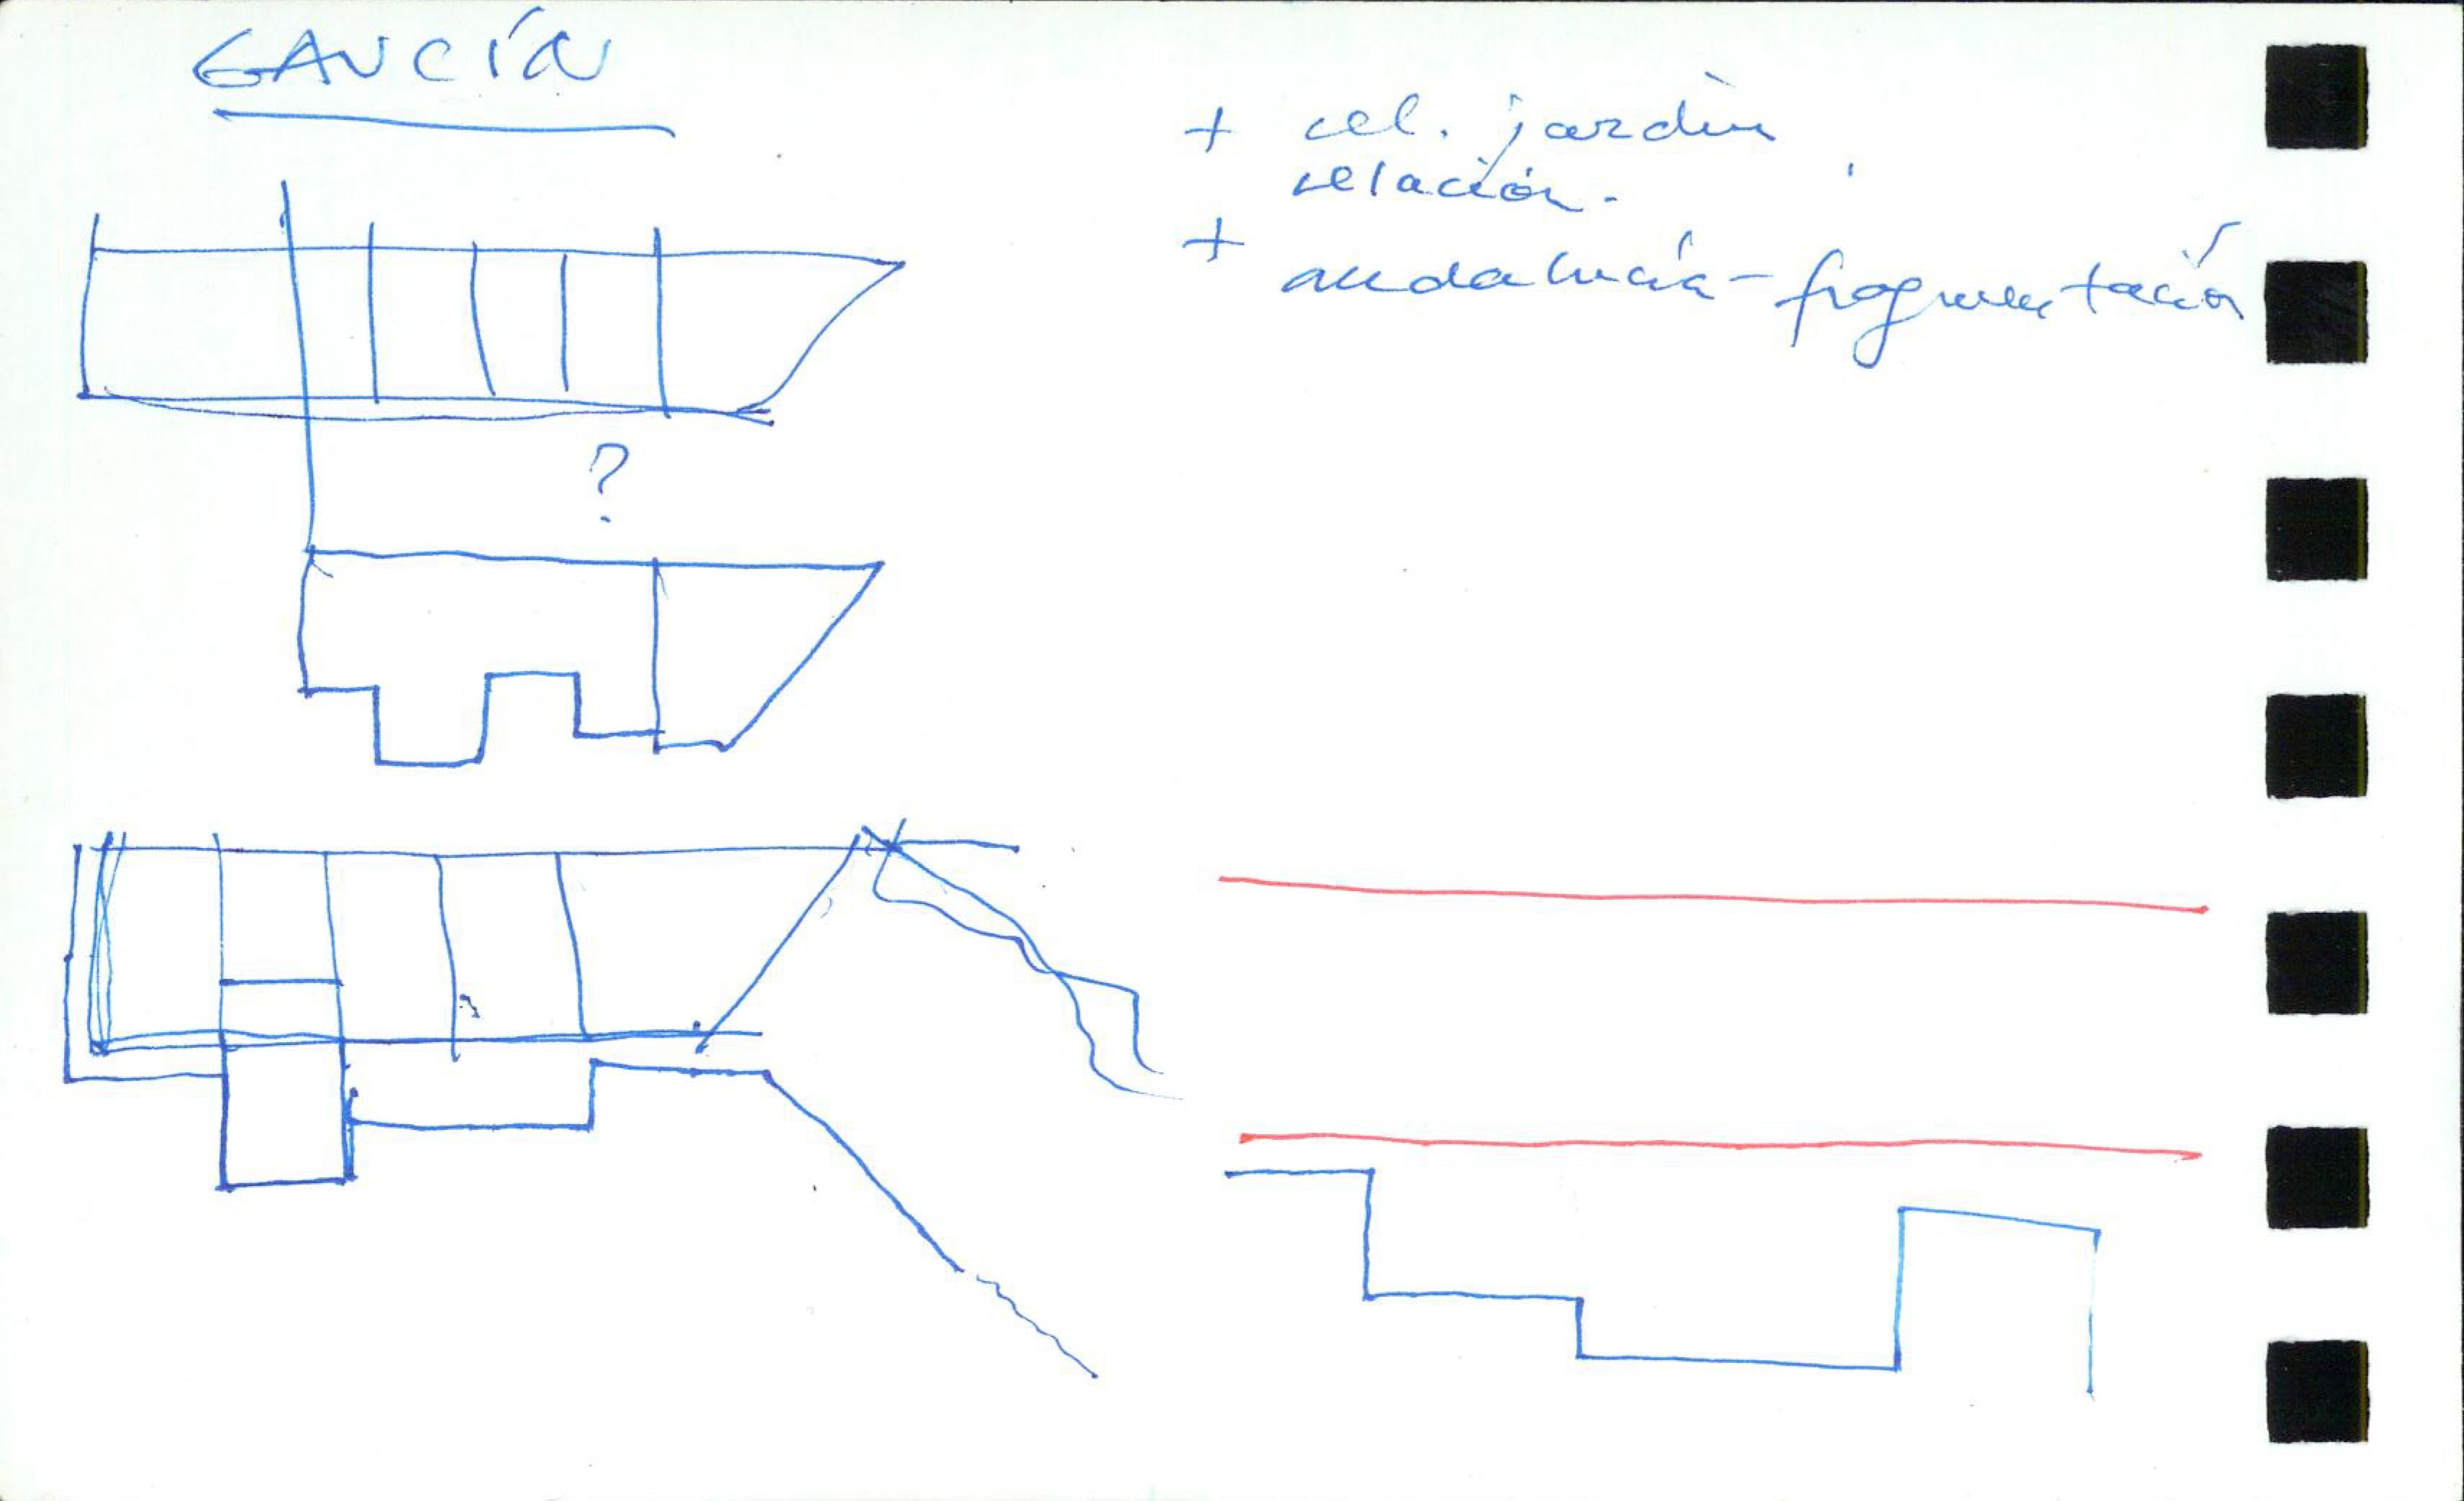 GAUCÍN
+ rel. jardín
relación.
+
andalucía - fragmentación
?